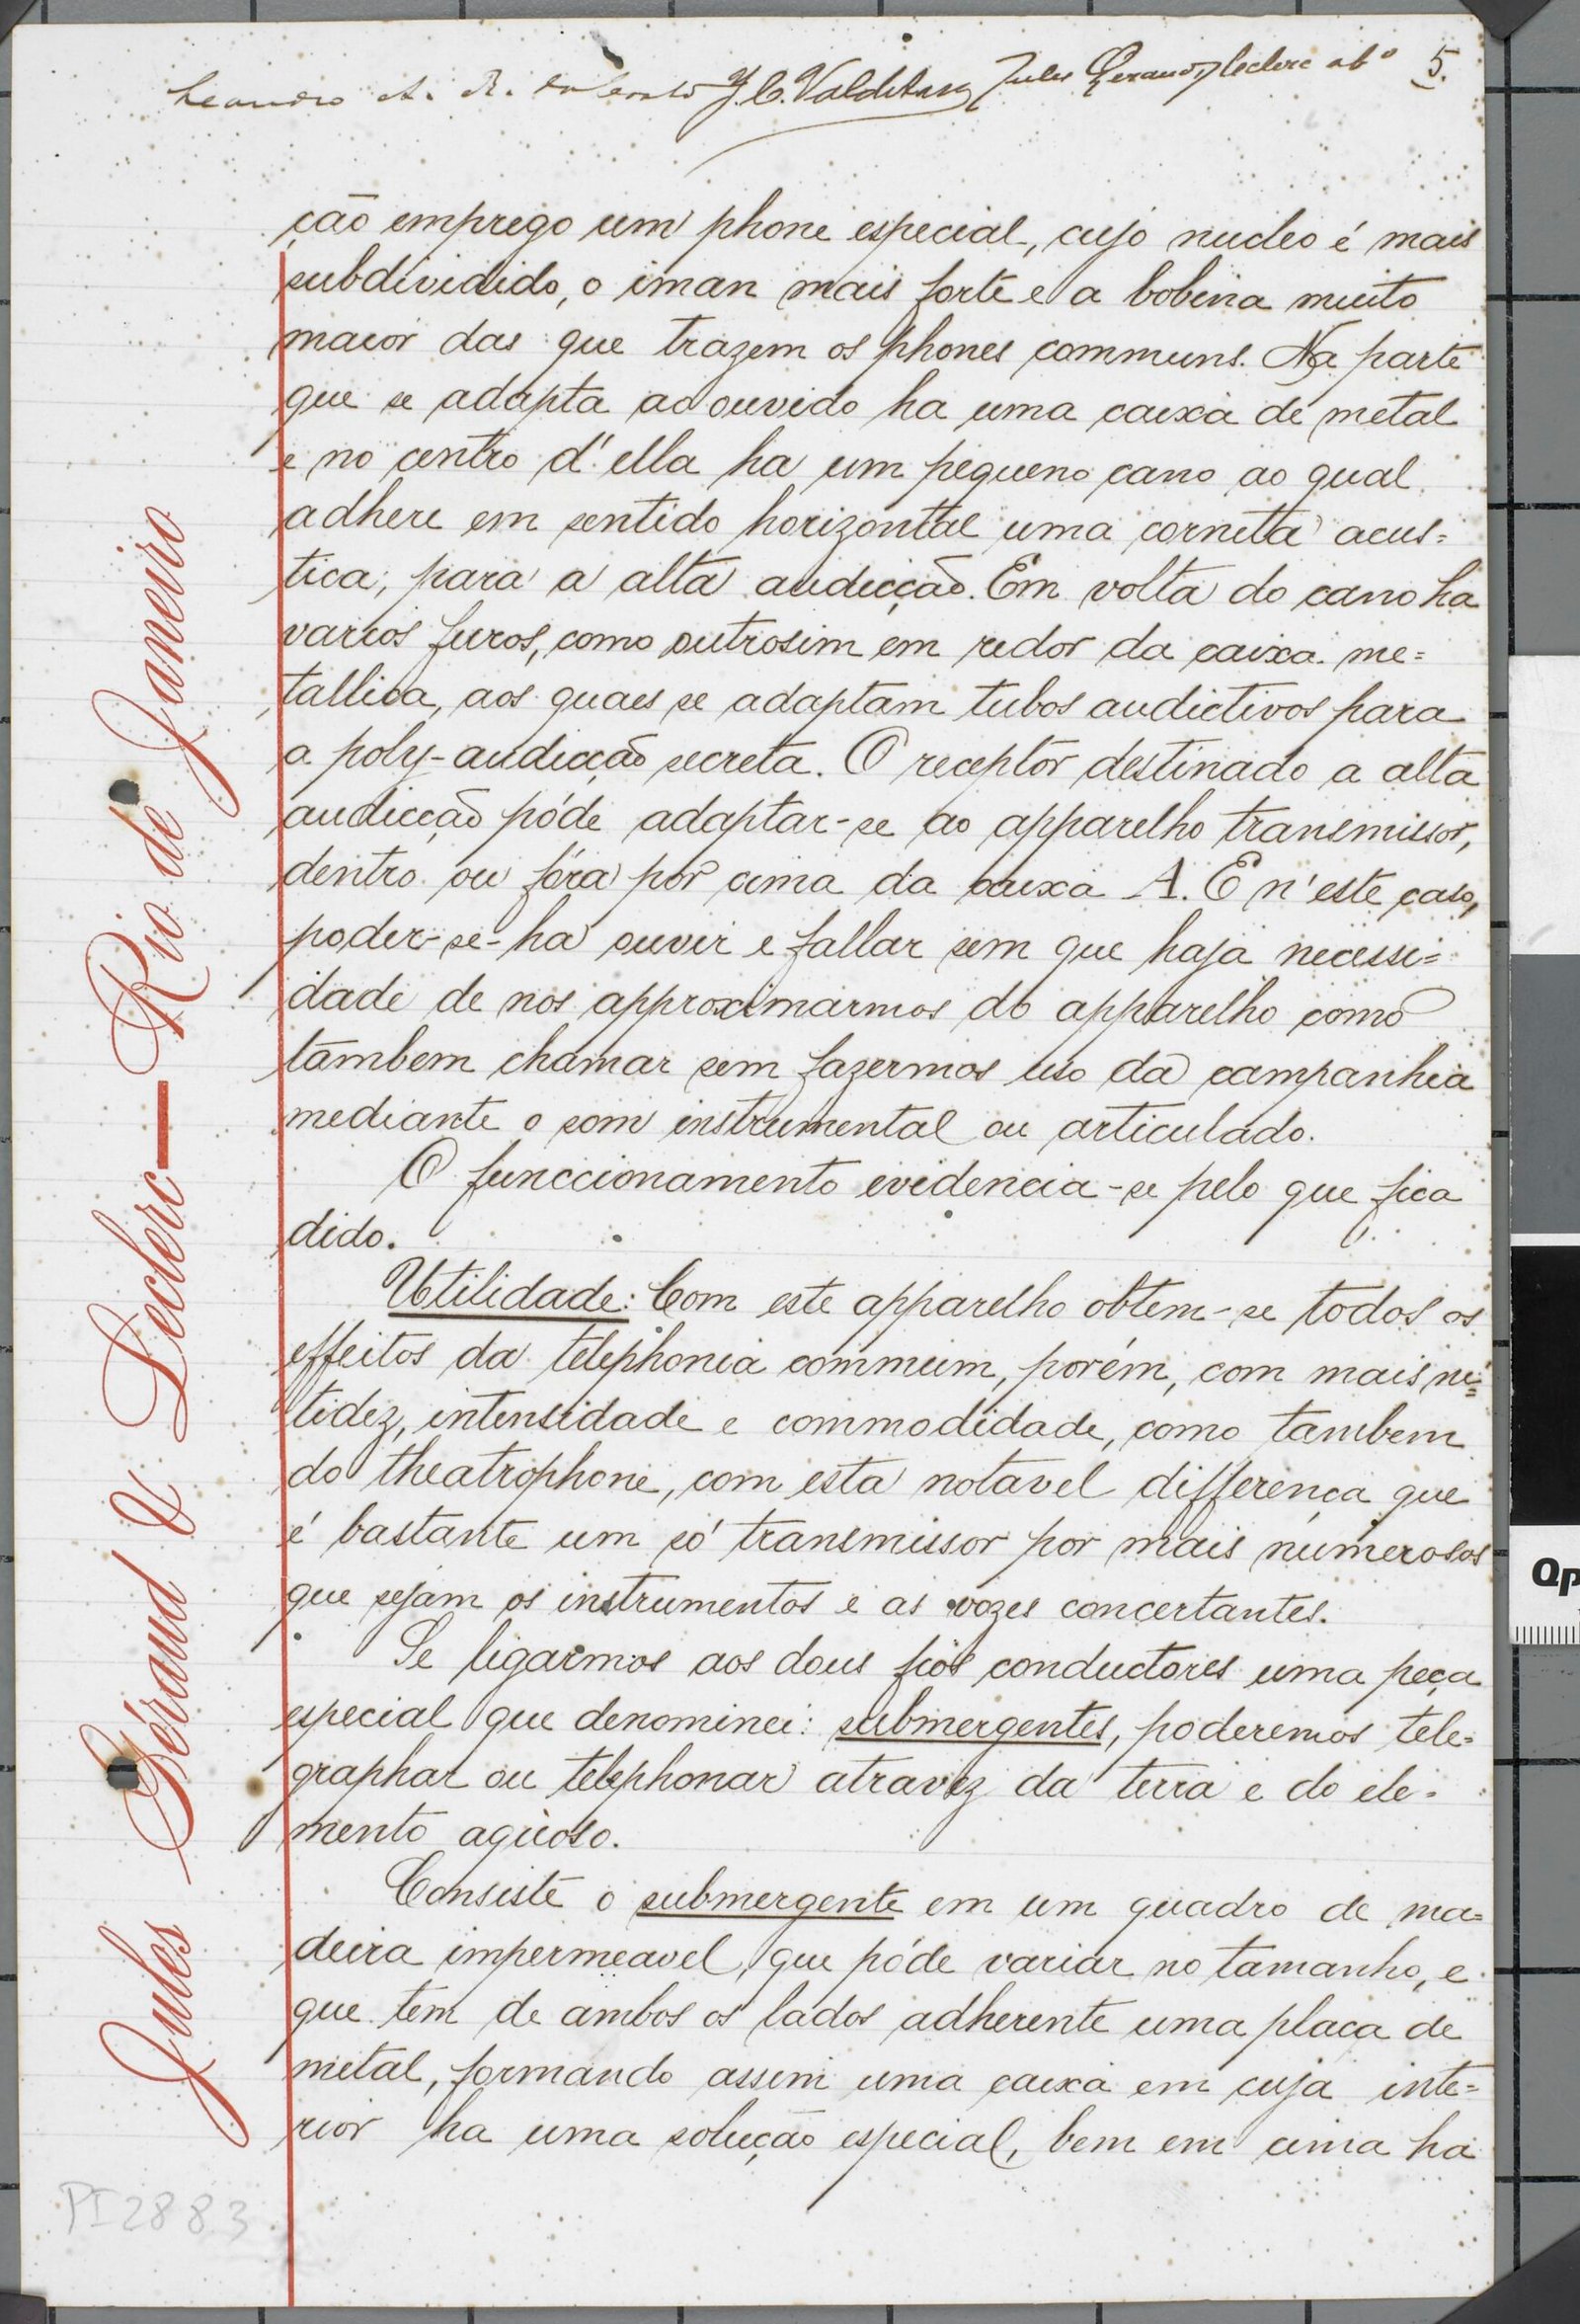 Leandro A. R. J. C. Valdetaro Jules Géraud, Leclerc & Cº 5.
ção emprego um phone especial, cujo nucleo é mais
subdividido, o iman mais forte e a bobina muito
maior das que trazem os phones communs. Na parte
que se adapta ao ouvido ha uma caixa de metal
e no centro d'ella ha um pequeno cano ao qual
adhere em sentido horizontal uma corneta acus=
tica, para a alta audicção. Em volta do cano ha
varios furos, como outrosim em redor da caixa me=
tallica, aos quaes se adaptam tubos audictivos para
a poly-audicção secreta. O receptor destinado a alta
audicção póde adaptar-se ao apparelho transmissor,
dentro ou fóra por cima da caixa A. E n'este caso,
poder-se-ha ouvir e fallar sem que haja necessi=
dade de nos approximarmos do apparelho como
tambem chamar sem fazermos uso da campanhia
mediante o som instrumental ou articulado.
O funccionamento evidencia-se pelo que fica
dido.
Utilidade: Com este apparelho obtem-se todos os
effeitos da telephonia commum, porém, com mais ni=
tidez, intensidade e commodidade, como tambem
do theatrophone, com esta notavel differença que
é bastante um só transmissor por mais numerosos
que sejam os instrumentos e as vozes concertantes.
Se ligarmos aos dous fios conductores uma peça
especial que denominei: submergentes, poderemos tele=
graphar ou telephonar atravez da terra e do ele=
mento aquoso.
Consiste o submergente em um quadro de ma=
deira impermeavel, que póde variar no tamanho, e
que tem de ambos os lados adherente uma placa de
metal, formando assim uma caixa em cuja inte=
rior ha uma solução especial, bem em cima ha
Jules Géraud & Leclerc — Rio de Janeiro
PI 2883
Qp